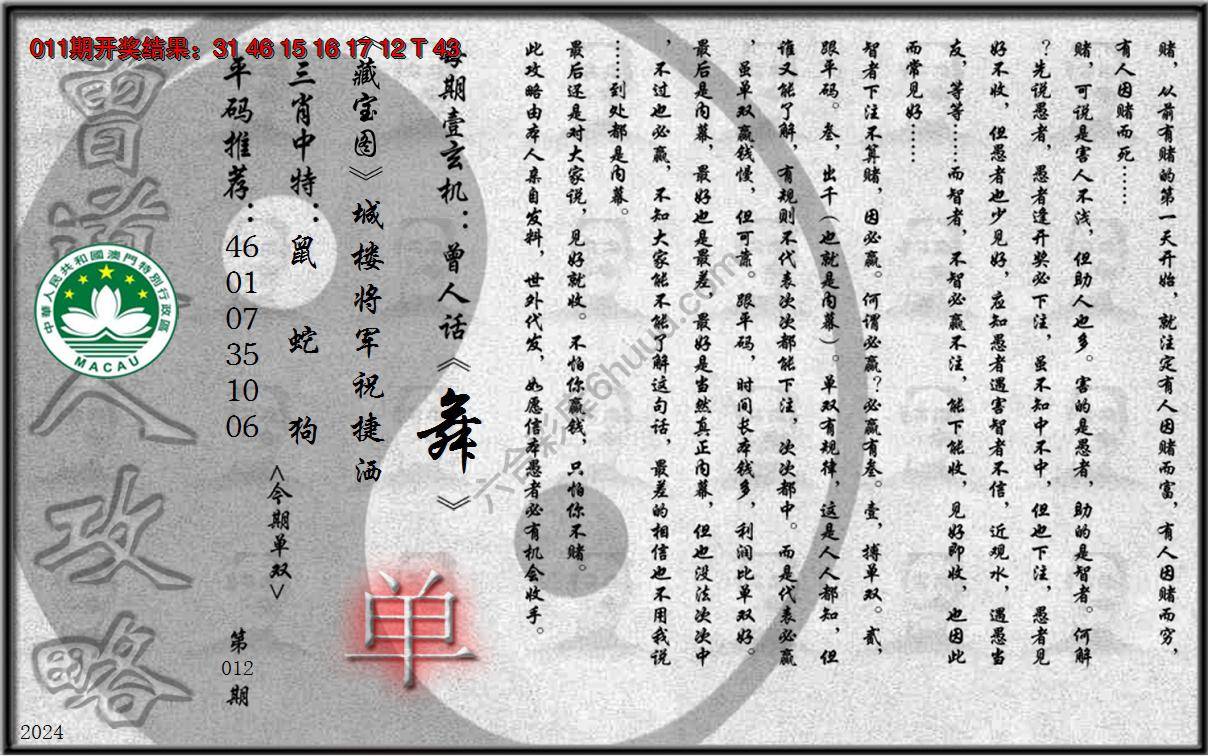 011期开奖结果：31 46 15 16 17 12 T 43
赌，从前有赌的第一天开始，就注定有人因赌而富，有人因赌而穷，
有人因赌而死……
赌，可说是害人不浅，但助人也多。害的是愚者，助的是智者。何解
？先说愚者，愚者逢开奖必下注，虽不知中不中，但也下注，愚者见
好不收，但愚者也少见好，应知愚者遇害智者不信，近观水，遇愚当
友，等等……而智者，不智必赢不注，能下能收，见好即收，也因此
而常见好……
智者下注不算赌，因必赢。何谓必赢？必赢有叁。壹，搏单双。贰，
跟平码。叁，出千（也就是内幕）。单双有规律，这是人人都知，但
谁又能了解，有规则不代表次次都能下注，次次都中。而是代表必赢
，虽单双赢钱慢，但可靠。跟平码，时间长本钱多，利润比单双好。
最后是内幕，最好也是最差，最好是当然真正内幕，但也没法次次中
，不过也必赢，不知大家能不能了解这句话，最差的相信也不用我说
……到处都是内幕。
最后还是对大家说，见好就收。不怕你赢钱，只怕你不赌。
此攻略由本人亲自发料，世外代发，如愿信本愚者必有机会收手。
每期壹玄机：曾人话《舞》
《藏宝图》城楼将军祝捷洒
三肖中特：鼠 蛇 狗
平码推荐：46 01 07 35 10 06
<今期单双>
单
第012期
曾道人攻略
中華人民共和國澳門特別行政區
MACAU
2024